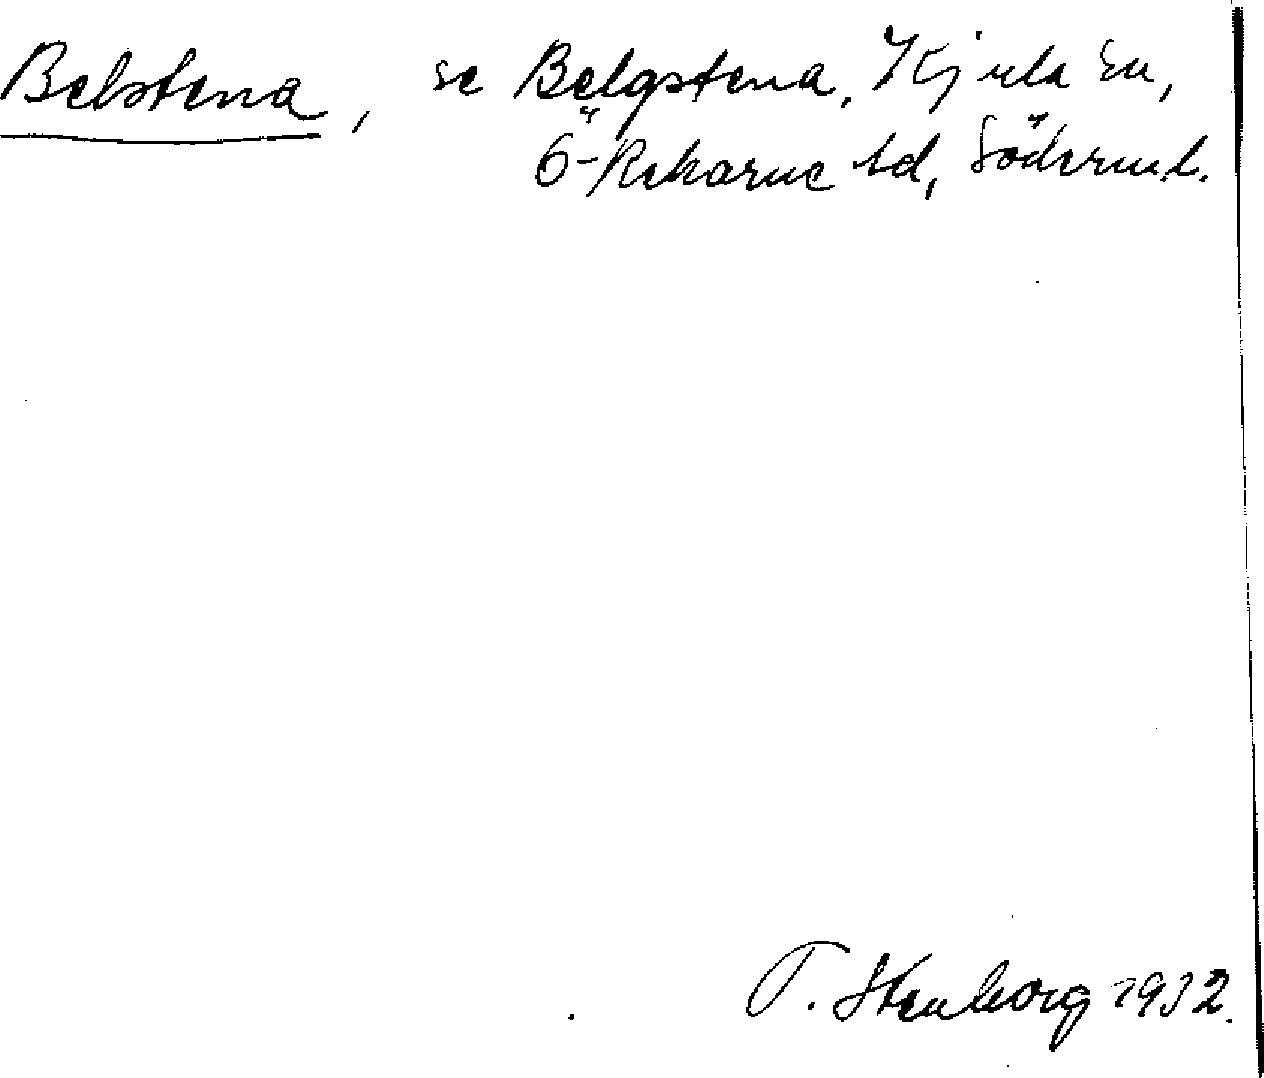 Belstena, se Belgstena, Kjula sn,
Ö-Rekarne hd, Söderml.
T. Stenborg 1932.